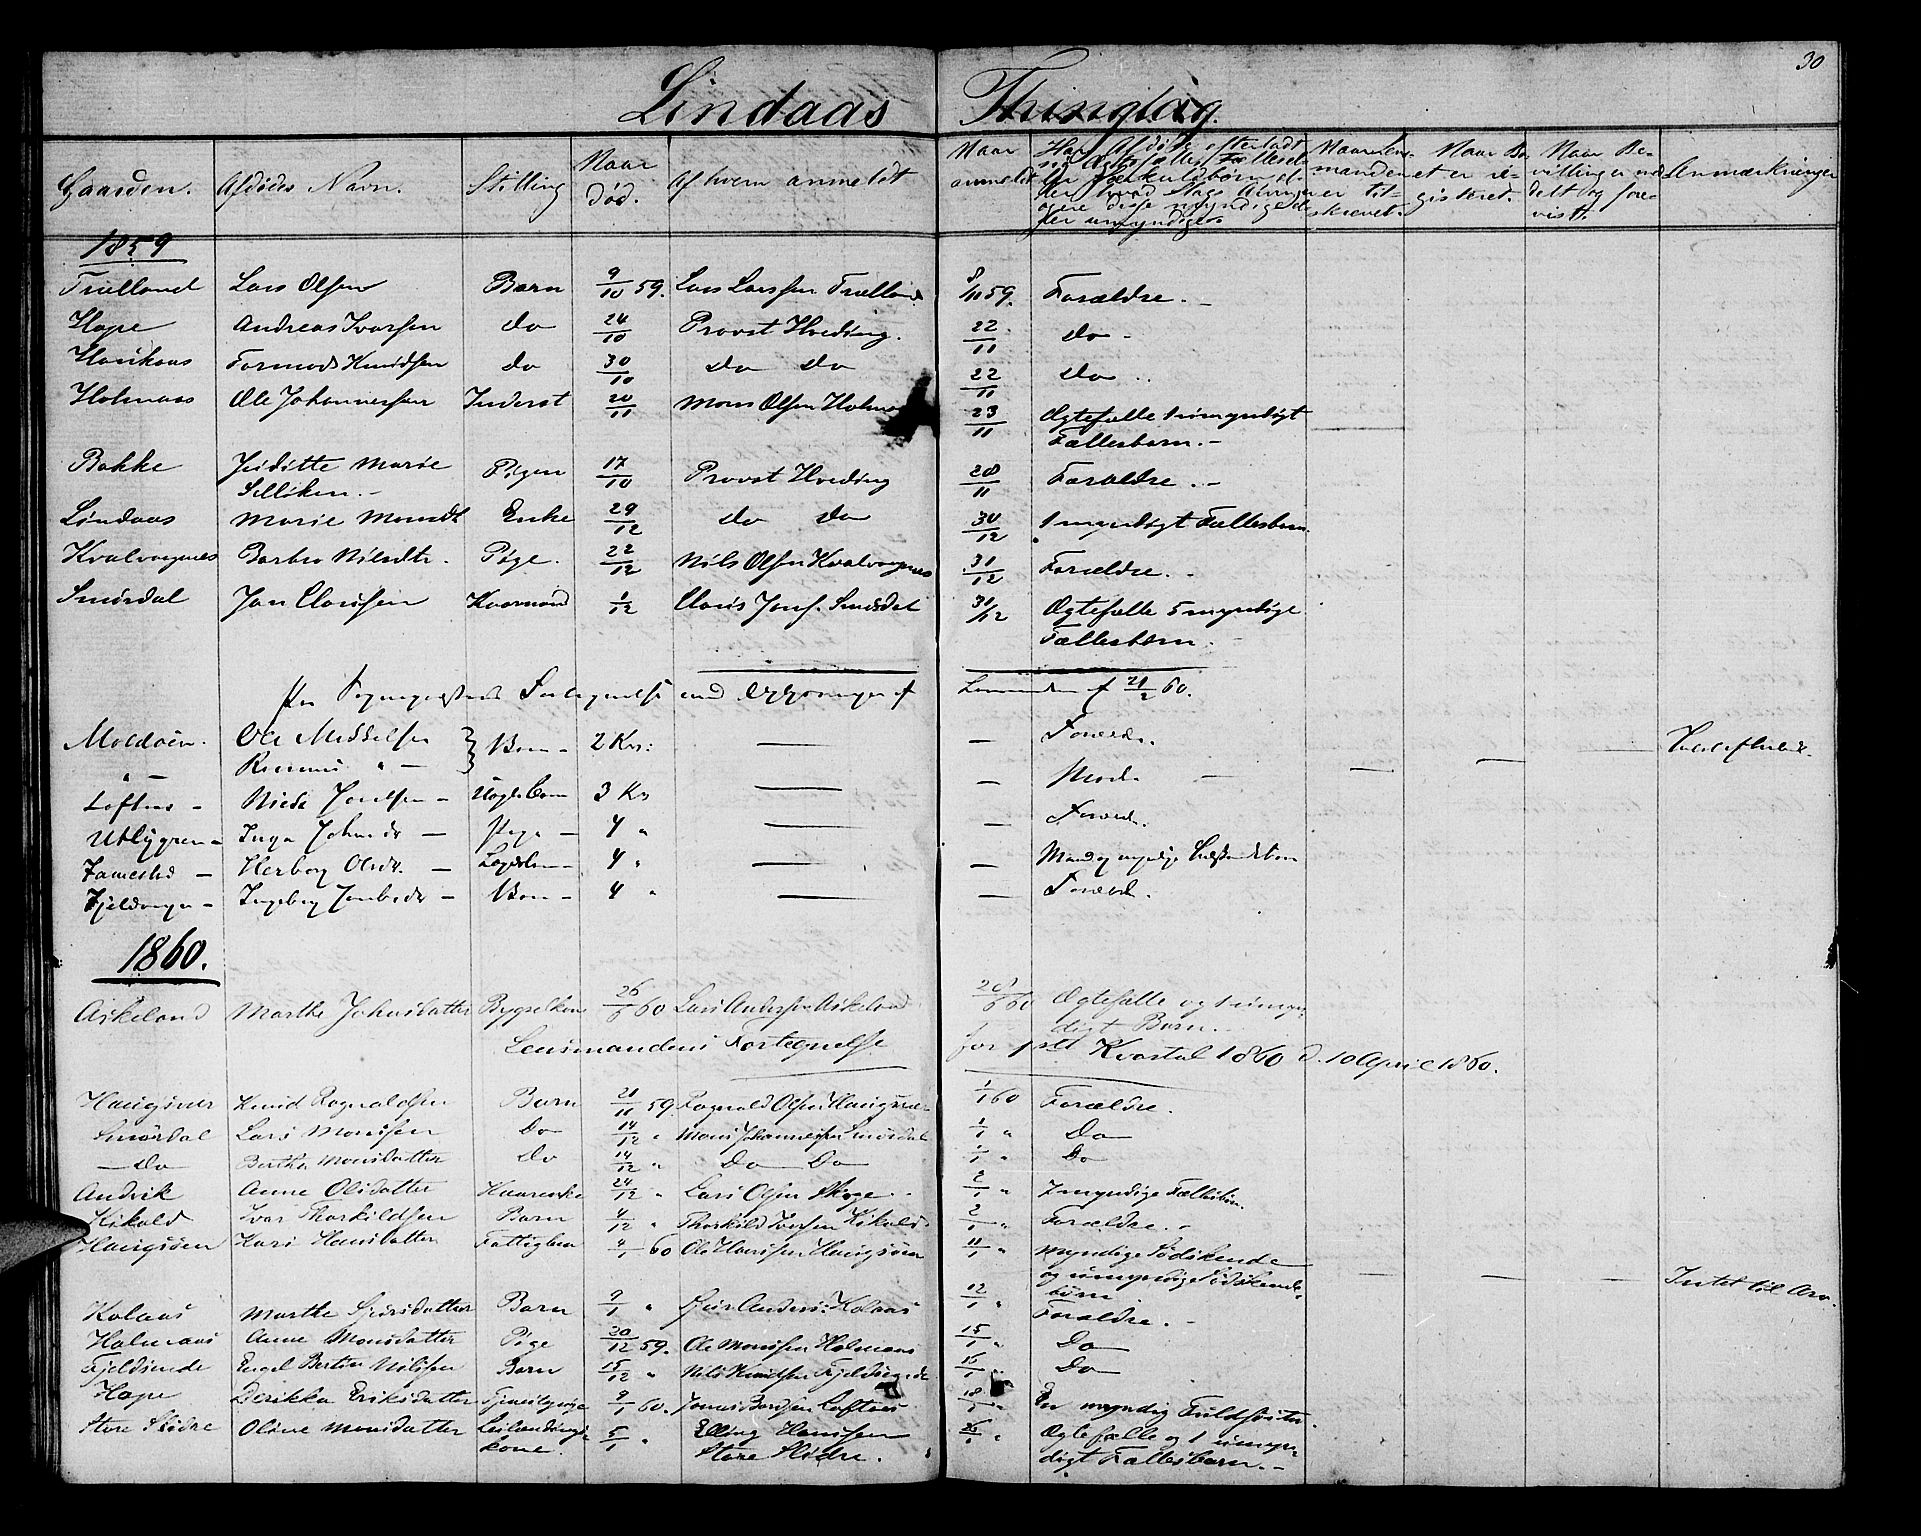 30
Lindaas Thinglag.
Gaarden. Afdødes Navn. Stilling Naar Død. Af hvem anmeldt Naar anmeldt Har Afdøde efterladt sig Ægtefælle, Fælles eller Særkuldbørn eller hvad Slags Arvinger ere disse myndige eller umyndige Naar Lensmanden er tilskrevet. Naar Boet er registeret. Naar Bevillinger meddelt og forevist. Anmærkninger
1859
Trælland Lars Olsen Barn 9/10 59. Lars Larssen Trælland 8/11 59. Forældre. -
Hope Andreas Ivarsen do 24/10 Provst Hveding. 22/11 do -
Haukaas Tormod Knudsen do 30/10 do do 22/11 do ..
Holmaas Ole Johannessen Inderst 20/11 Mons Olsen Holmaas 23/11 Ægtefælle 1 umyndigt
Fællesbarn. -
Bakke Juditte Marie Pigen 17/10 Provst Hveding 28/11 Forældre. -
Lindaas Marie Mundt Enke 29/12 do do 30/12 1 myndigt Fællesbarn
Kvalvaagnes Barbro Nilsdtr. Pige. 22/12 Nils Olsen Kvalvaagnes 31/12 Forældre. -
Smørdal Jan Clausen Kaarmand 1/12 Claus Jans. Smørdal 31/12 Ægtefælle 5 myndige
Fællesbørn. -
Fortegnelse med Lensmanden 21/2 60.
Moldøen. Ole Mikkelsen Barn - 2 Kv: — — Forældr.
Rasmus " — — Mod.
Loftaas - Jonsen - 3 Kv — — Foræld.
Inga Johnsdr — Pige - 4 " — —
Herborg Olsdr. — 4 " — —
Fjeldvagn - Ingeborg - Barn - 4 " — — Foræld.
1860.
Askeland Marthe Johnsdatter Bygselkone 26/6 60 Lars Anderssen Askeland 28/6 60 Ægtefælle og 1 umyn-
digt Barn. -
Lensmandens Fortegnelse for 1ste Kvartal 1860 d. 10 April 1860.
Haugsvær Knud Rognaldsen Barn 21/11 59. Rognald Olsen Haugsvær 1/1 60 Forældre.
Smørdal Lars Monssen Do 14/12 " Mons Johannessen Smørdal 1/1 " Do
— Do Bertha Monsdatter Do 14/12 " Do Do 1/1 " Do
Andvik Anne Olsdatter Kaarenke 24/12 " Lars Olsen Skoge - 2/1 " 7 myndige Fællesbørn.
Kikald Ivar Thorkildsen Barn 4/12 " Thorkild Iversen Kikald 2/1 " Forældre. -
Haugsøen Kari Hansdatter Fattiglem 4/1 60 Ole Hanssen Haugsøen 11/1 " myndige Sødskende
og umyndige Sødskende-
børn — — — Intet til Arv.
Kolaas Marthe Sjursdatter Barn 9/1 " Sjur Anders: Kolaas 12/1 " Forældre. -
Holmaas Anne Monsdatter Pige 20/12 59. Ole Monssen Holmaas 15/1 " Do
Fjeldsende Engel Bertin Nilssen Barn 15/12 " Nils Knudsen Fjeldsende 16/1 " Do
Hope Derikka Eriksdatter Tjenestepige 9/1 60. Jonas Bardsen Loftaas 18/1 " En myndig Fuldsøster.
Store Skidre Oline Monsdatter Leilændings- 5/1 " Elling Hanssen 26/1 " Ægtefælle og 1 umyn-
kone. Store Skidre. digt Fællesbarn. -